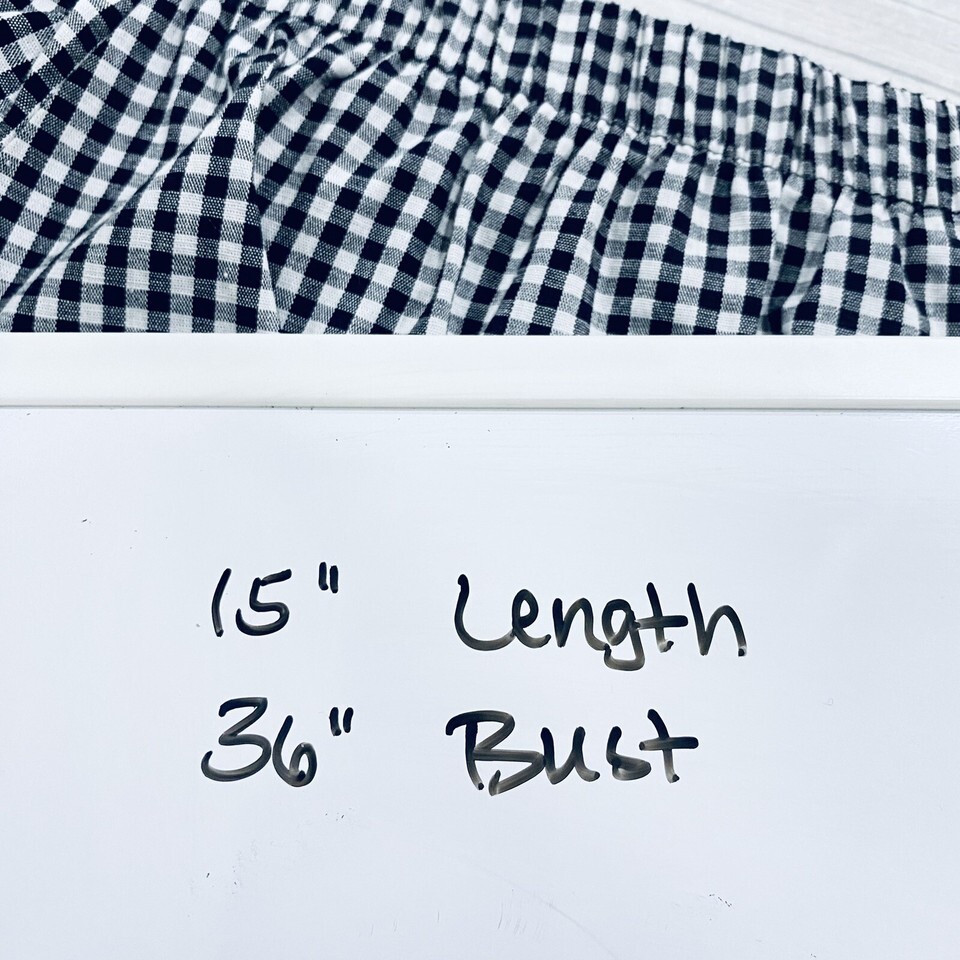 15" Length
36" Bust